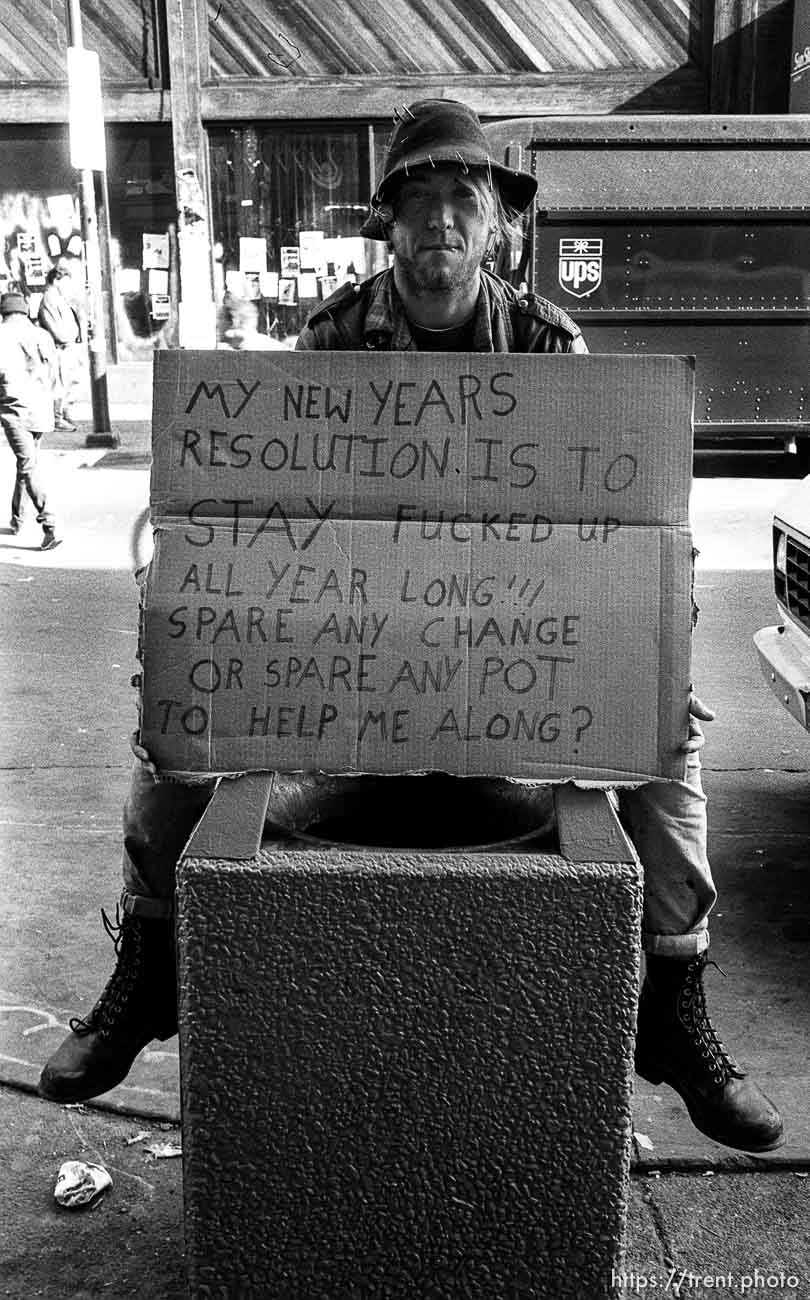 ups
MY NEW YEARS
RESOLUTION. IS TO
STAY FUCKED UP
ALL YEAR LONG!!!
SPARE ANY CHANGE
OR SPARE ANY POT
TO HELP ME ALONG?
https://trent.photo